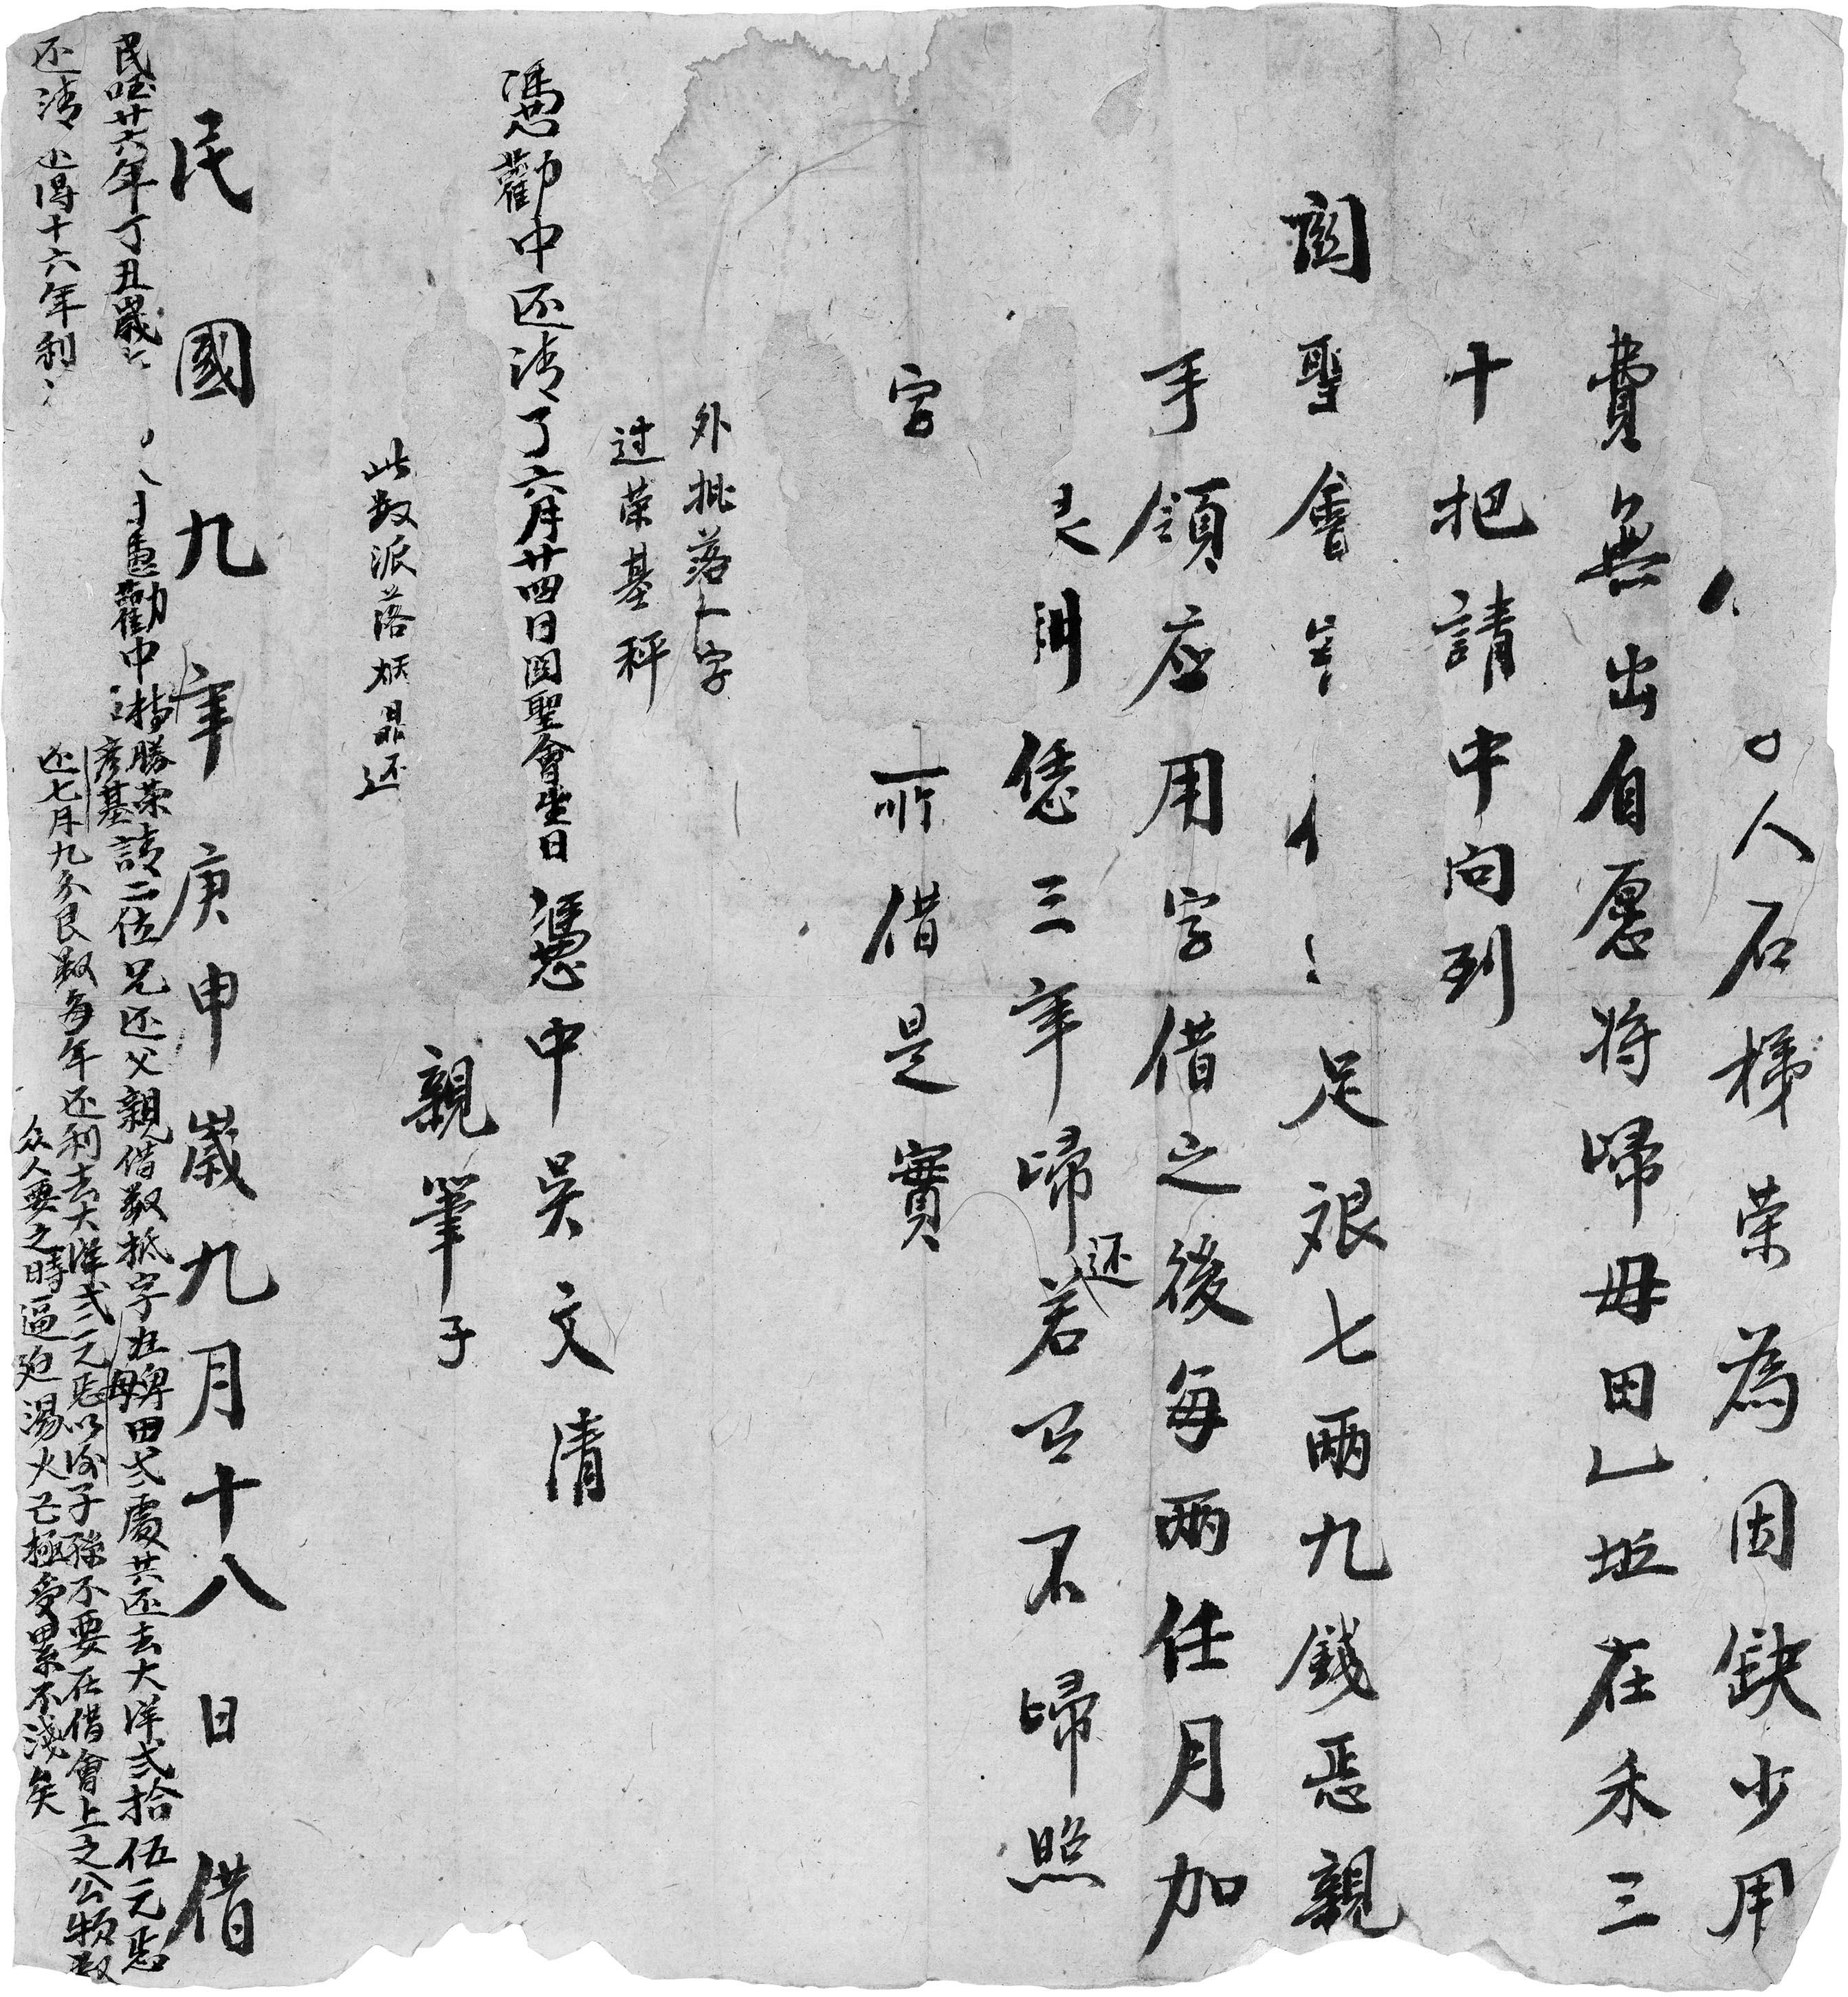 人石梯荣為因缺少用
費無出自愿将歸母田乚坵在禾三
十把請中问到
關聖會
足艮七兩九錢恁親
手領应用字借之後每兩任月加
恁三年歸还若公不歸照
字
所借是實
外批落上字
过荣基秤
憑勸中还清了六月廿四日関聖會坐日憑中吳文清
此数派落炳晶还
親筆子
民國九年庚申歲九月十八日借
民囯廿六年丁丑歲
憑勸中
勝荣彦基請二位兄还父親借数抵字
田弍處共还去大洋弍拾伍元恁
还清
得十六年利
还七月九
艮数每年还利去大洋弍元恁以後子孫不要在借會上之公
数
众人要之時逼廹湯火亡極受累不淺矣